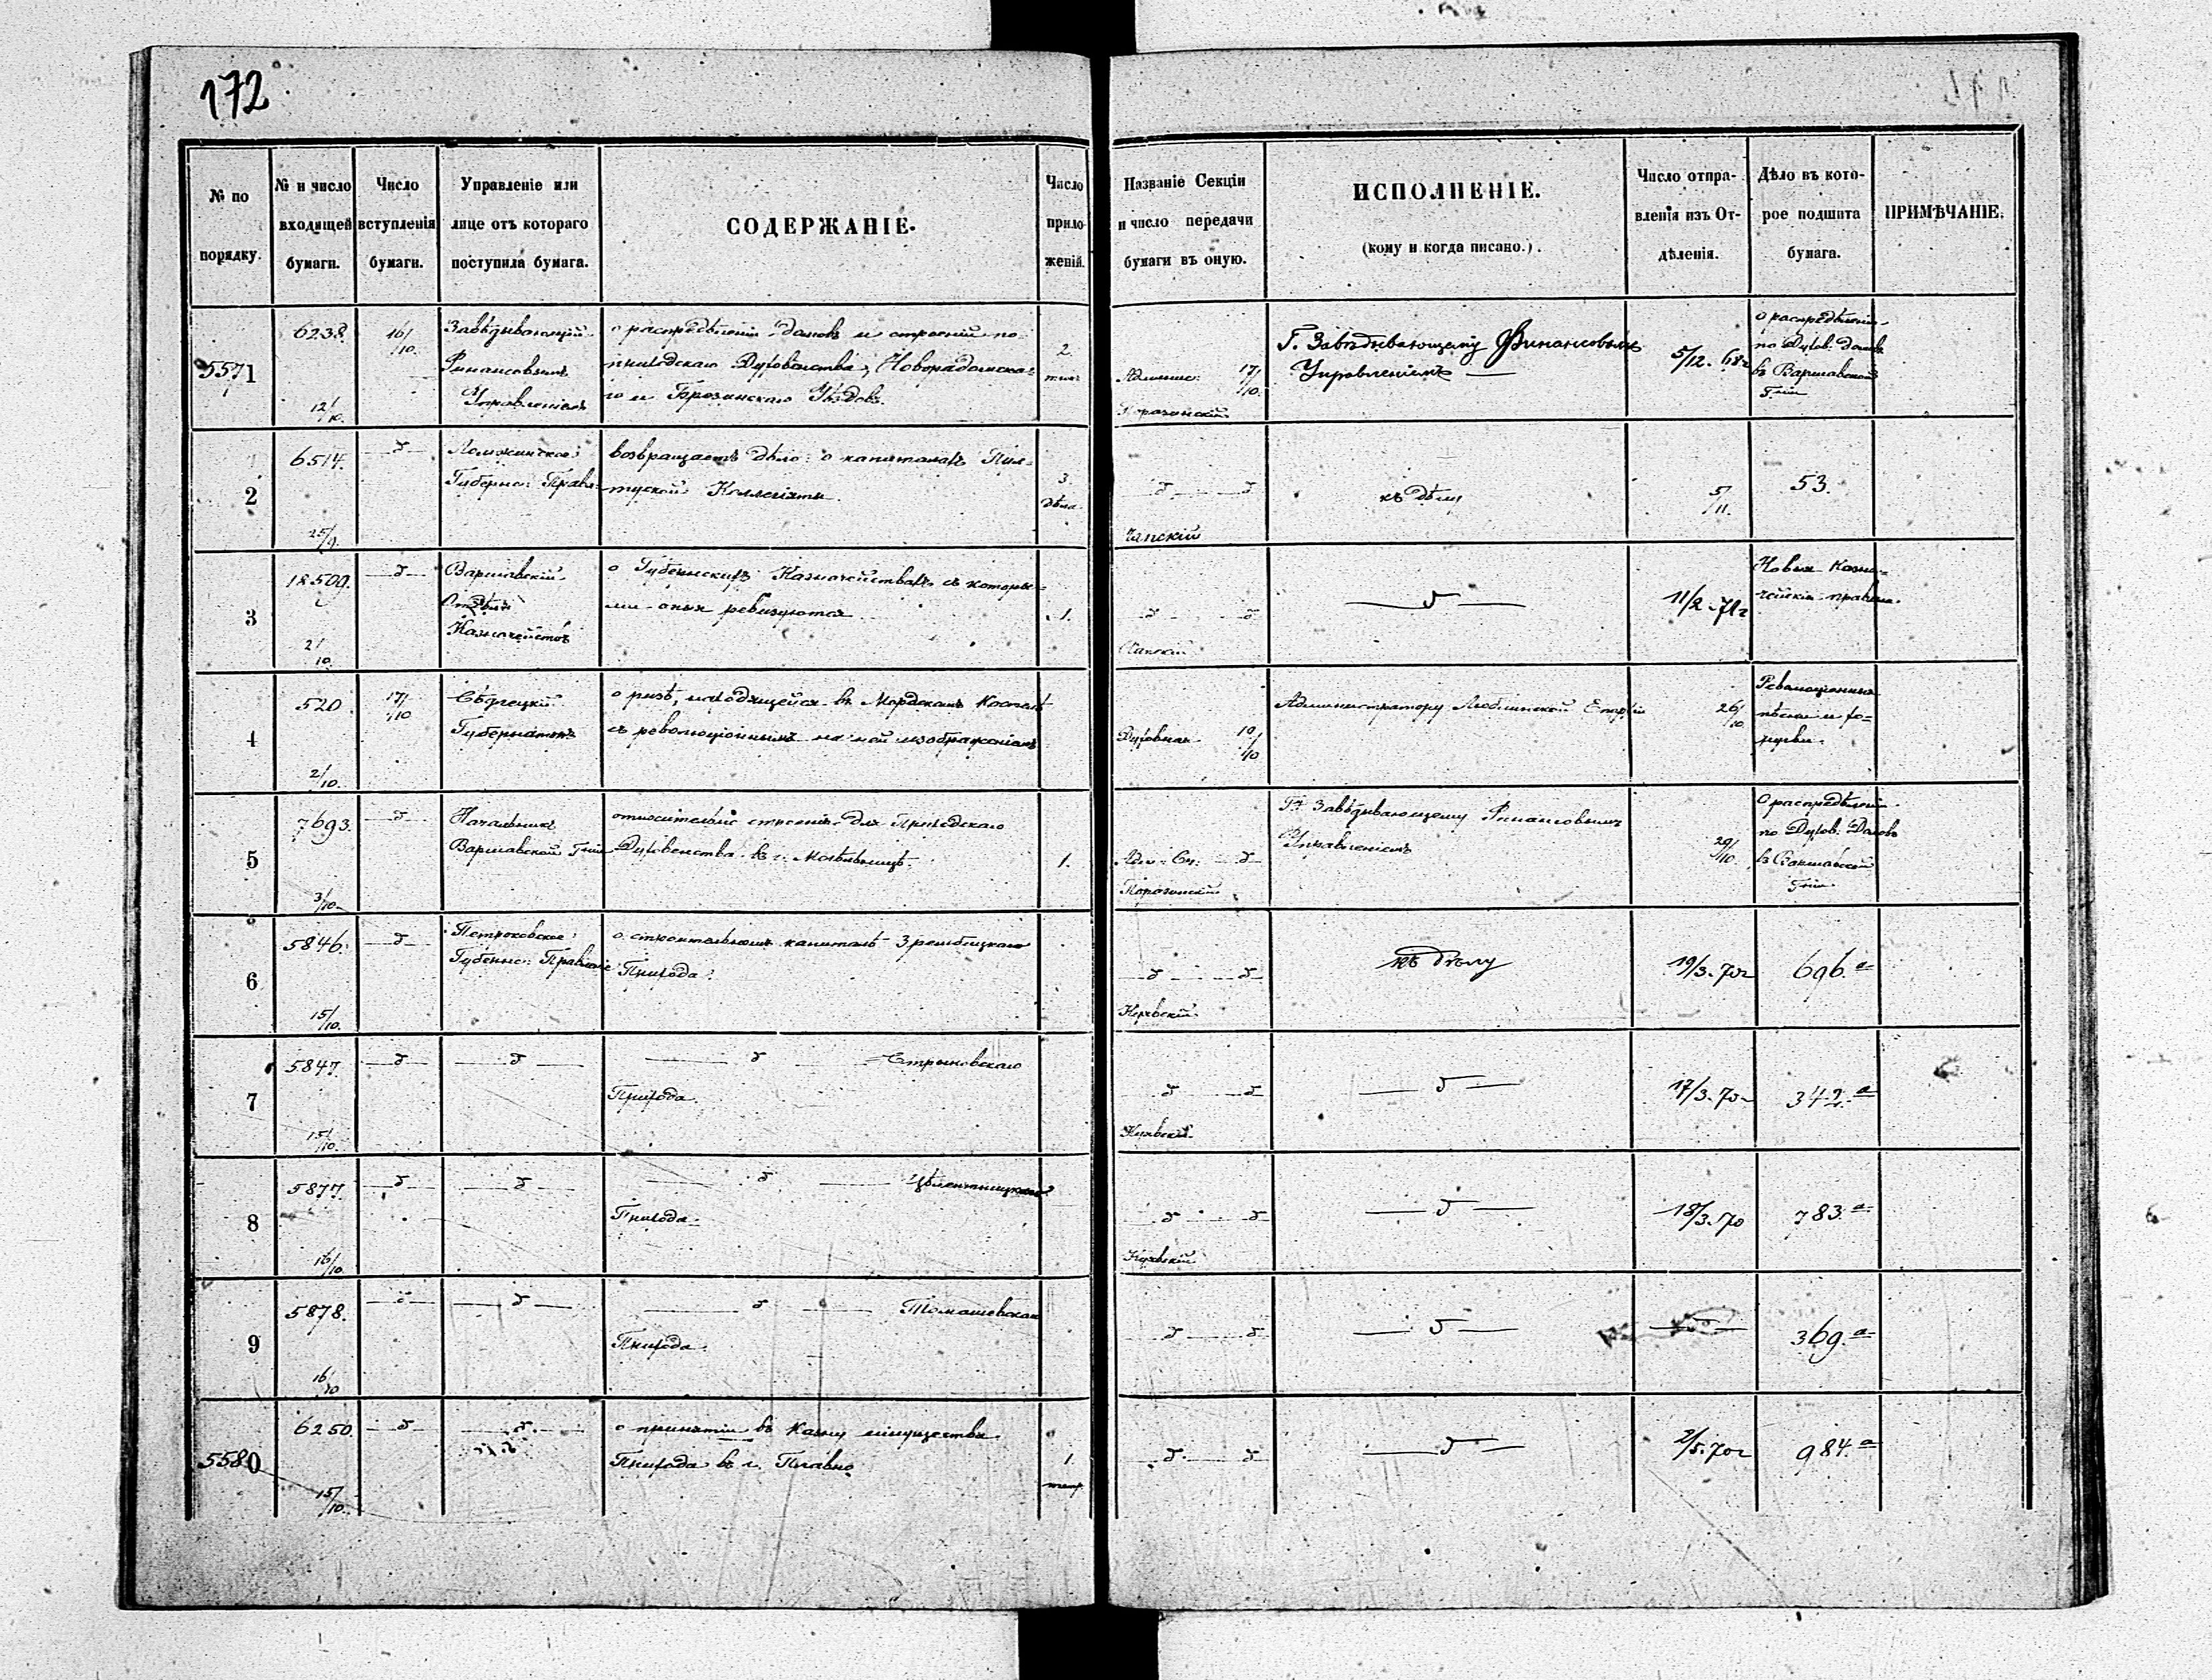 172
№ по порядку.
№ и число входящей бумаги.
Число вступленія бумаги.
Управленіе или лице отъ котораго поступила бумага.
СОДЕРЖАНІЕ.
Число приложеній.
Названіе Секціи и число передачи бумаги въ оную.
ИСПОЛНЕНІЕ.
(кому и когда писано.)
Число отправленія изъ Отдѣленія.
Дѣло въ которое подшита бумага.
ПРИМѢЧАНІЕ.
5571
6238.
12/10.
16/10.
Завѣдывающій
Финансовымъ
Управленіемъ
о распредѣленіи домовъ и строеній по
приходскаго Духовенства, Новорадомска=
го и Брезинскаго Уѣздовъ.
2.
17/10.
Г. Завѣдывающему Финансовымъ
Управленіемъ —
5/12. 68г
О распредѣленіи
по Духов. Домовъ
въ Варшавской
Гніи
2
6514.
25/9.
— д —
Ломжинское
Губернс: Правл:
возвращаетъ дѣло: о капиталахъ Пул=
туской Коллегіаты.
3
дѣла
д — д
Чапскій
къ дѣлу
5/11.
53.
3
18509.
2/10
— д —
Варшавскій
Отдѣл:
Казначействъ
о Губернскихъ Казначействахъ съ которы=
ми оныя ревизуются
1.
д — д
— д —
11/2. 71г
Новыя Казна=
чейскія правила.
4
520
2/10.
17/10
Сѣдлецкій
Губернаторъ
о ризѣ, находящейся въ Мордскомъ Костелѣ
съ революціоннымъ на ней изображеніемъ
Духовная
19/10
Администратору Люблинской Епархіи
26/10
Революціонныя
пѣсни и хо=
ругви.
5
7693.
3/10.
— д —
Начальникъ
Варшавской Гніи
относительно строенія для Приходскаго
Духовенства въ г.
1.
Адм: Сц: — д
Гну Завѣдывающему Финансовымъ
Управленіемъ
29/10.
О распредѣленіи
по Духов. Домовъ
въ Варшавской
Гніи
6
5846.
15/10.
— д —
Петроковское
Губернс: Правленіе
о строительномъ капиталѣ
Прихода.
д — д
къ дѣлу
19/3. 70г
696.а
7
5847.
15/10.
— д —
— д —
— д — Стрыковскаго
Прихода.
д — д
— д —
17/3. 70
342.а
8
5877.
16/10.
— д —
— д —
— д —
Прихода.
д — д
— д —
18/3. 70
783.а
9
5878.
16/10
— д —
— д —
— д — Томашевскаго
Прихода.
д — д
— д —
— д —
369.а
5580
6250.
15/10.
— д —
— д —
о принятіи въ Казну имущества
Прихода въ г. Плавно
1
д — д
— д —
2/5. 70г
984.а